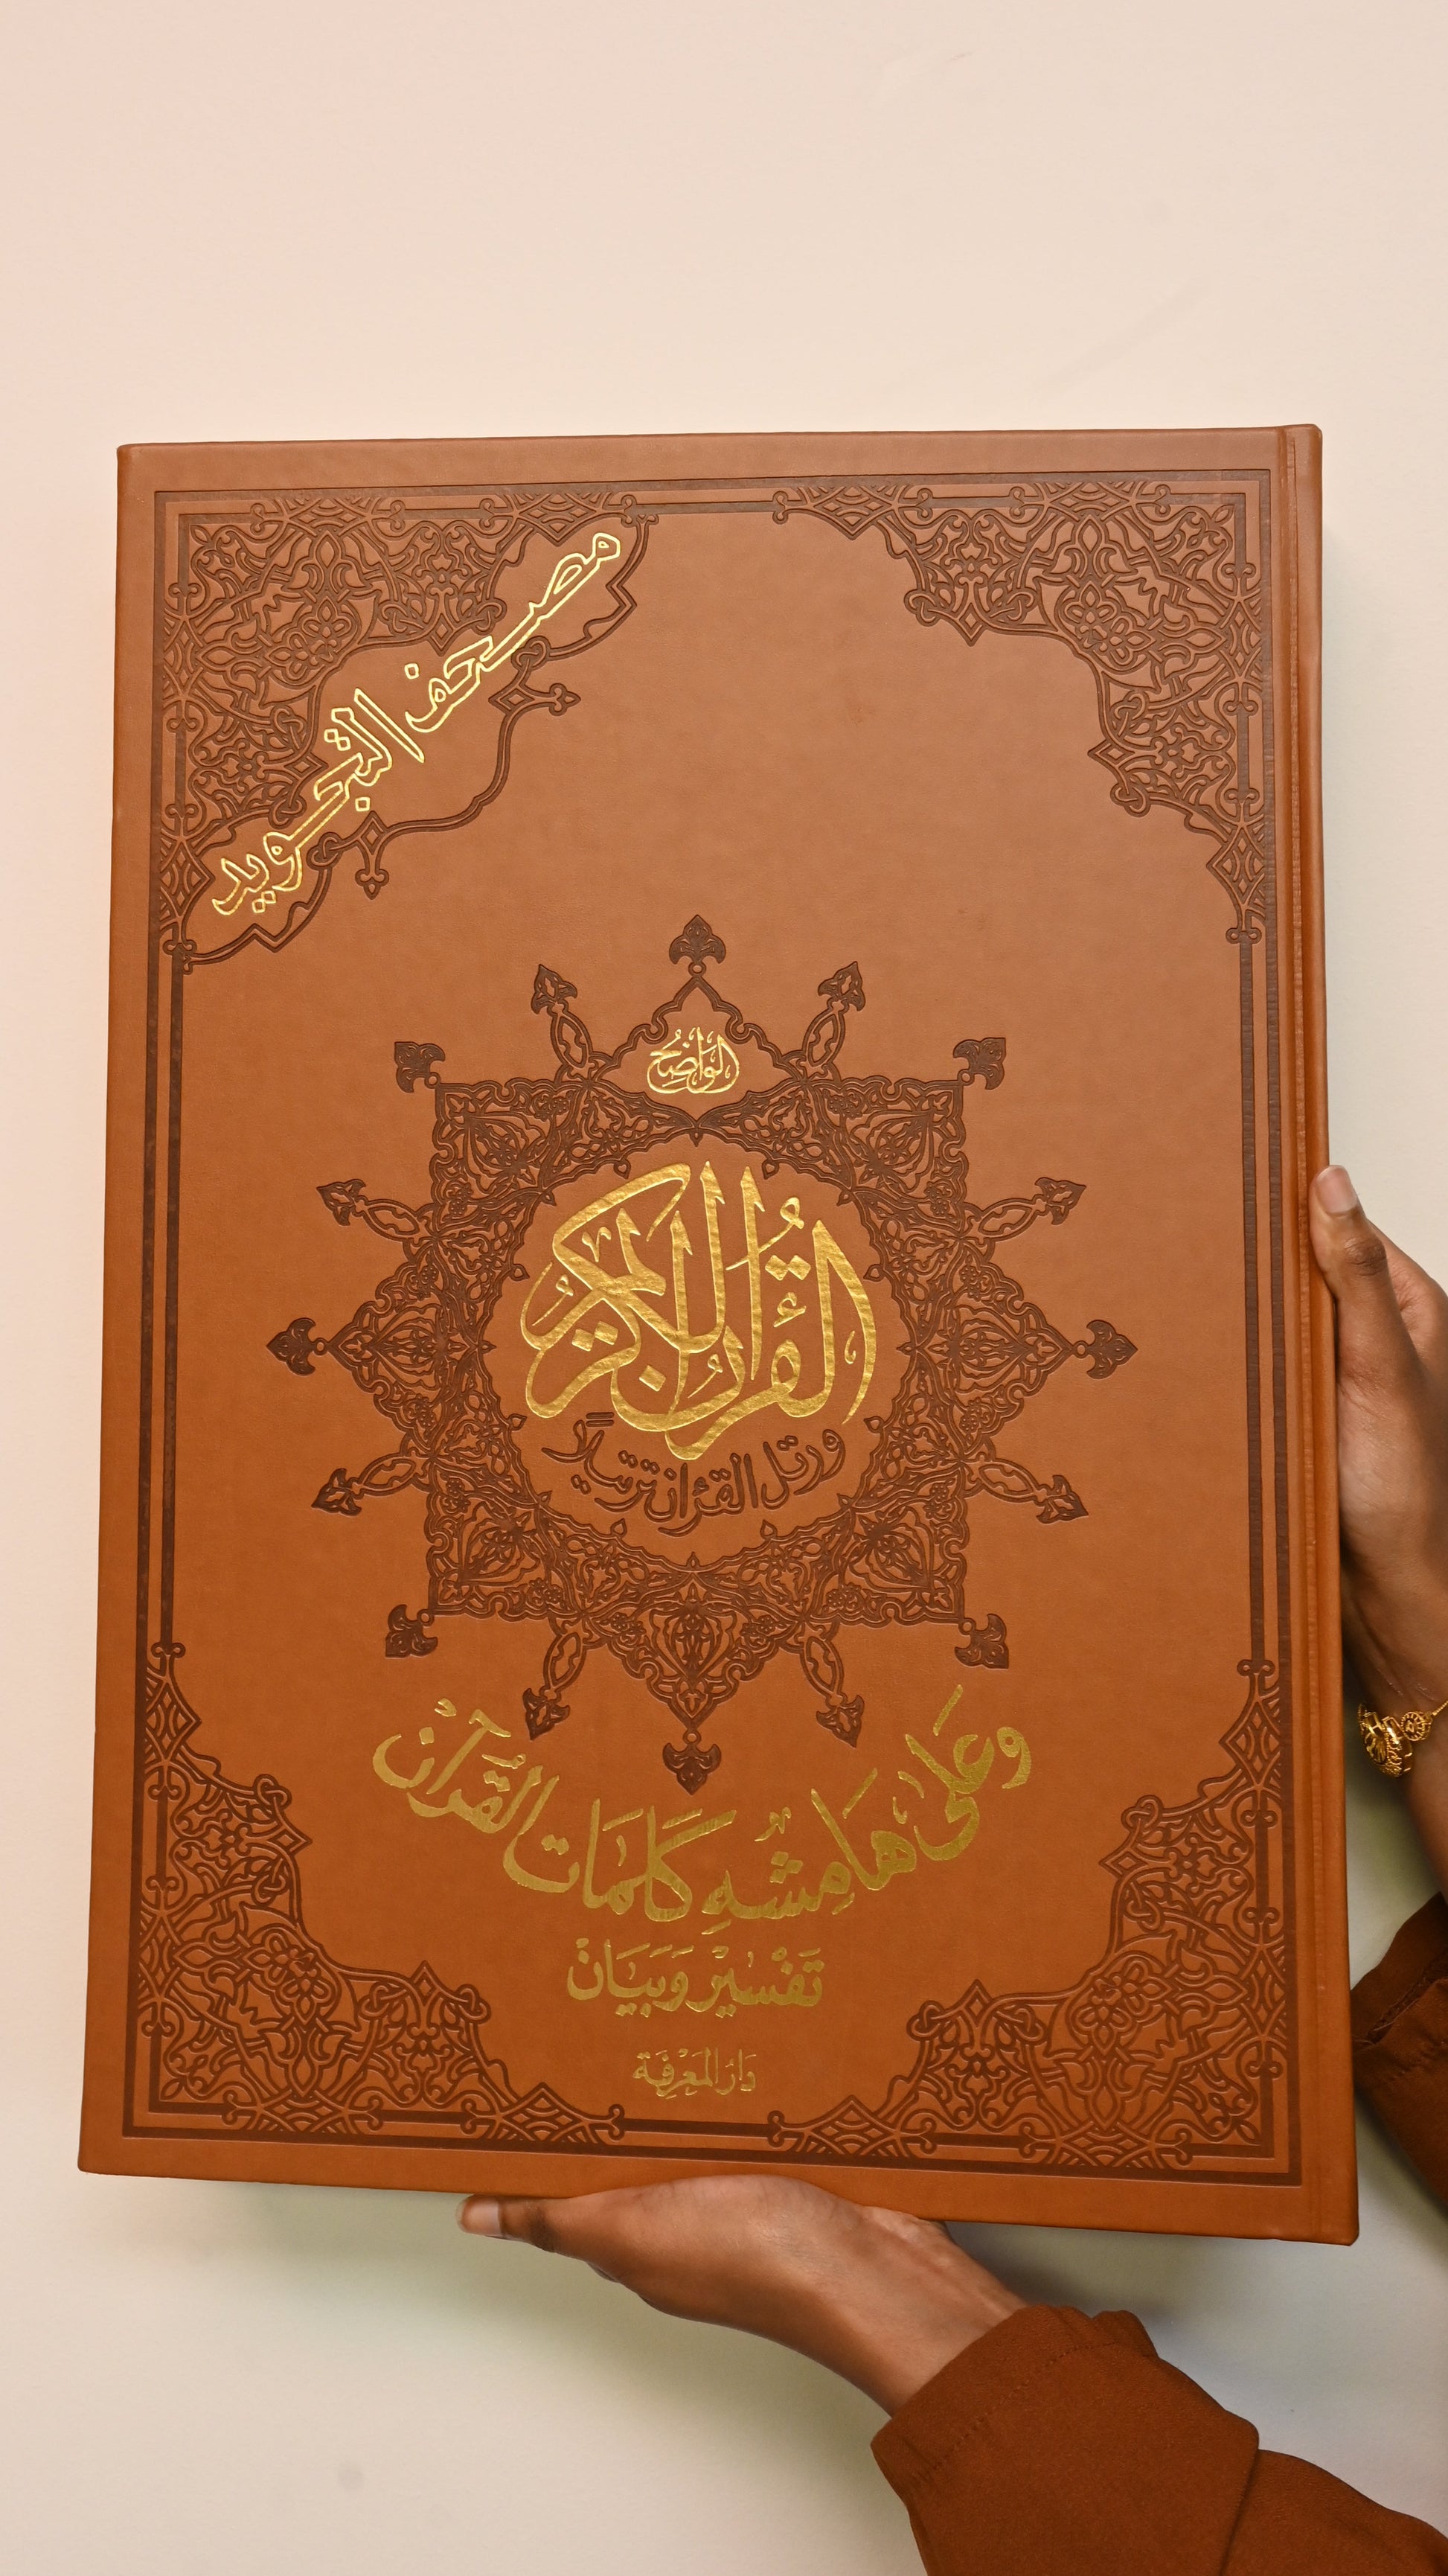 مصحف التجويد
الواضح
القرآن الكريم
ورتل القرءان ترتيلاً
وَعَلى هَامِشِهِ كَلِمَات القُرآن
تَفْسِيْر وَبَيَان
دَار المَعْرِفَة